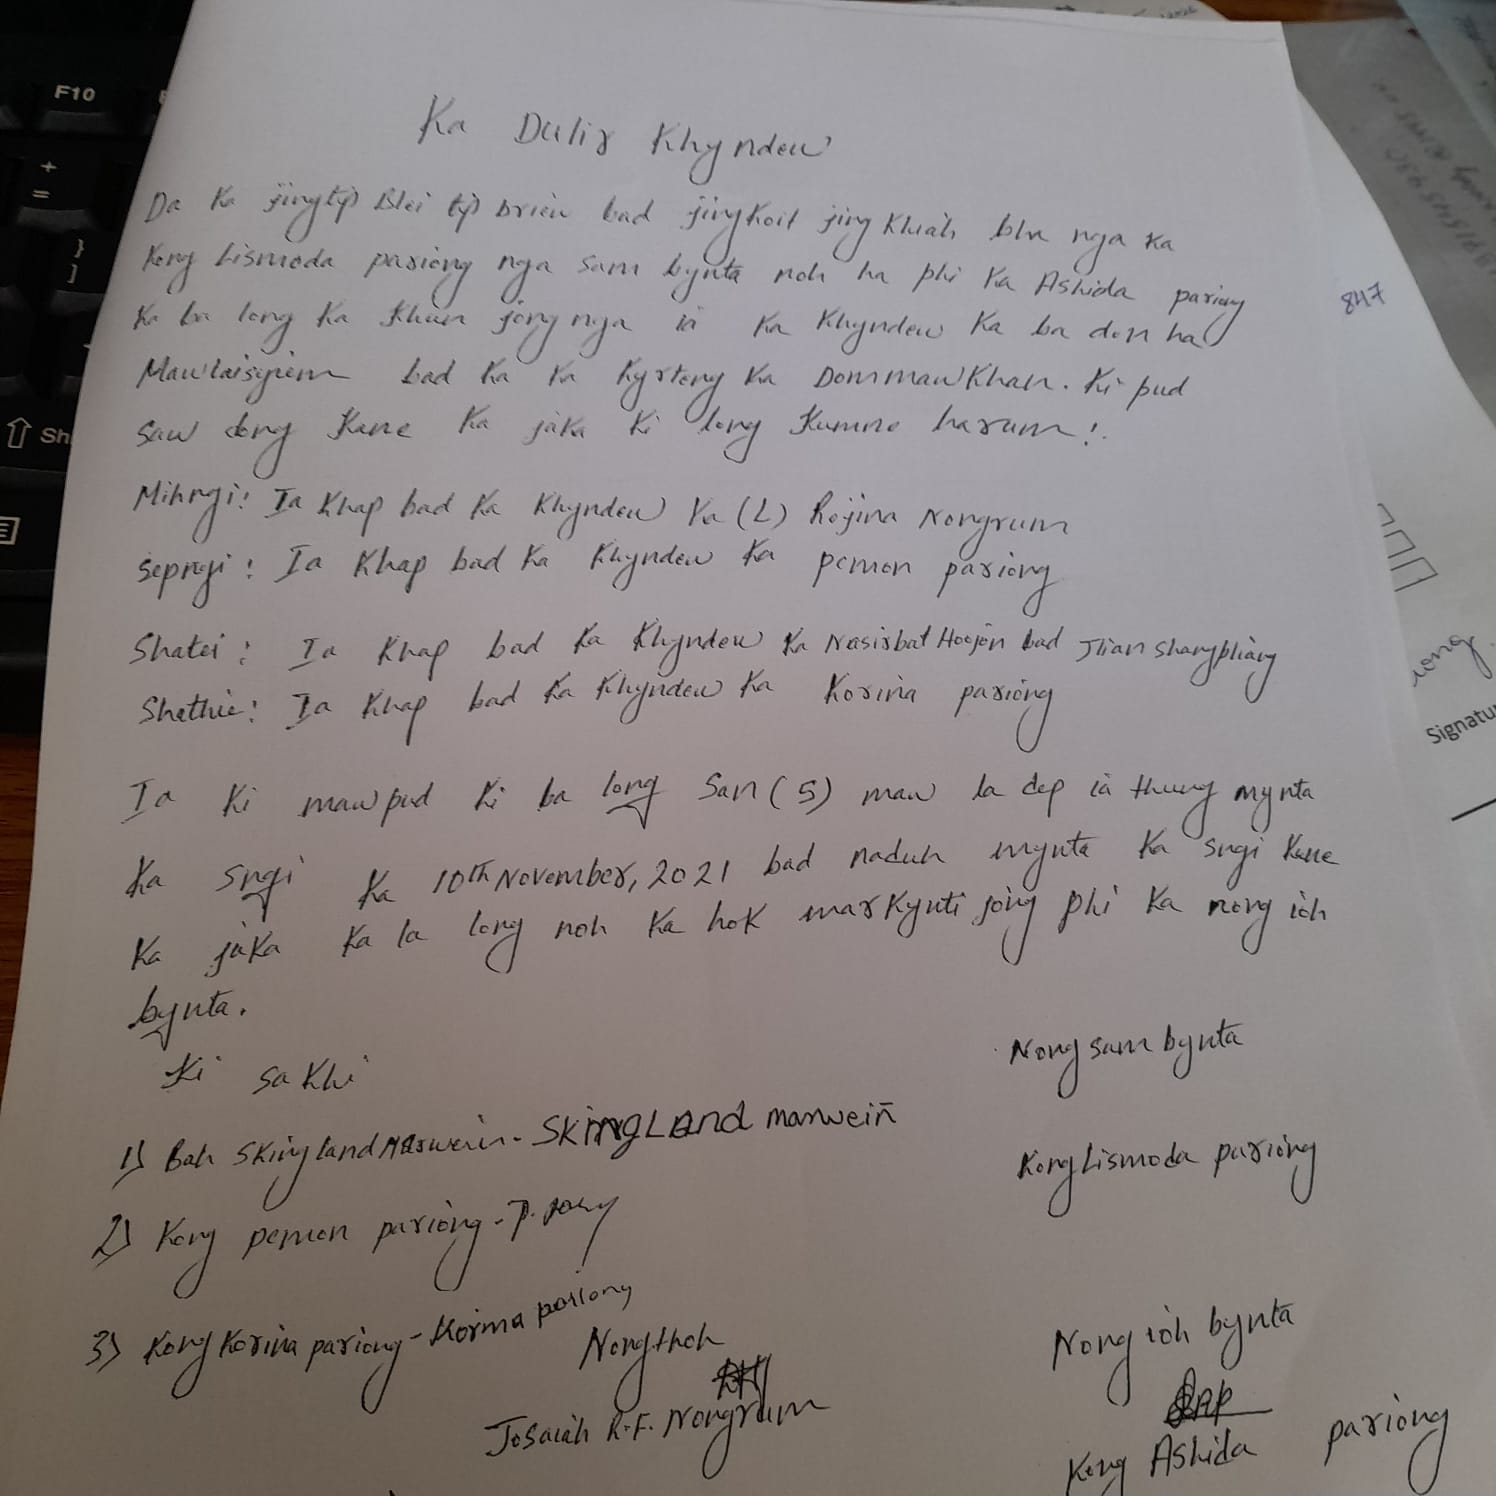 Ka Dulir Khyndew
Da Ka jingtip Blei tip briew bad jingkoit jing Khiah bha nga Ka
Kong Lismoda pariong nga sam bynta noh ha phi Ka Ashida pariong
Ka ba long Ka Khun jong nga ia Ka Khyndew Ka ba don ha
Mawlaisyiem bad Ka Ka Kyrteng Ka Dommawkhan. Ki pud
saw dong Kane Ka jaka Ki long Kumne harum!.
847
Mihngi: Ia Khap bad Ka Khyndew Ka (L) Rojina Nongrum
Sepngi: Ia Khap bad Ka Khyndew Ka pemon pariong
Shatei: Ia Khap bad Ka Khyndew Ka Nasisbat Hoojon bad Jlian Shangpliang
Shathie: Ia Khap bad Ka Khyndew Ka Korina pariong
Signatu
Ia Ki mawpud Ki ba long San (5) maw la dep ia thung mynta
Ka sngi Ka 10th November, 2021 bad naduh mynta Ka sngi Kane
Ka jaka Ka la long noh Ka hok markynti jong phi Ka nong ioh
bynta.
Ki sakhi
Nong sam bynta
1) Bah Skingland Marwein - SKINGLAnd marwein
Kong Lismoda pariong
2) Kong pemon pariong -
3) Kong Korina pariong - Korina pariong
Nongthoh
Josaiah R.F. Nongrum
Nong ioh bynta
Kong Ashida pariong
F10
+
=
}
]
Sh